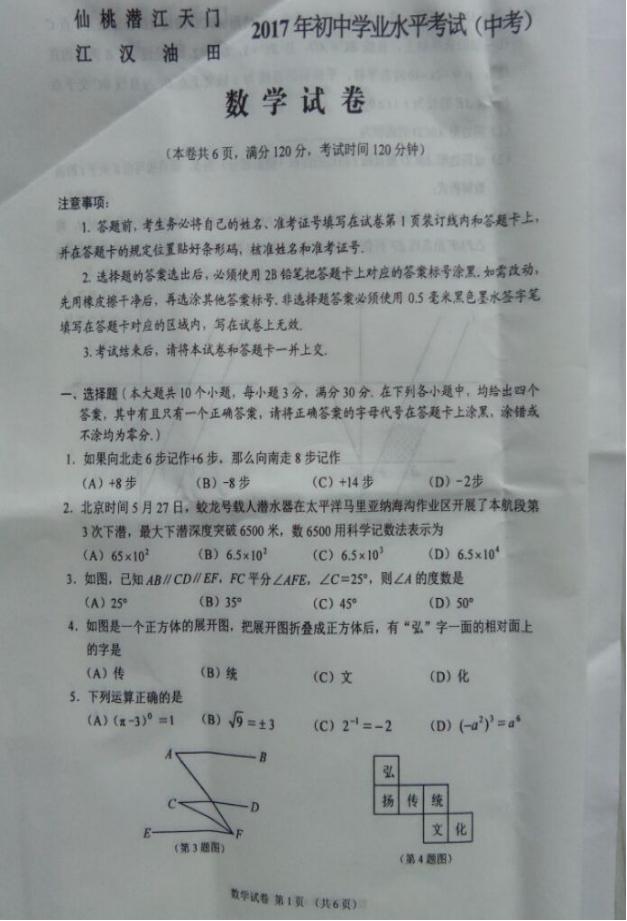 仙桃潜江天门
江汉油田
2017年初中学业水平考试（中考）
数学试卷
（本卷共6页，满分120分，考试时间120分钟）
注意事项：
1. 答题前，考生务必将自己的姓名、准考证号填写在试卷第1页装订线内和答题卡上，
并在答题卡的规定位置贴好条形码，核准姓名和准考证号.
2. 选择题的答案选出后，必须使用2B铅笔把答题卡上对应的答案标号涂黑.如需改动，
先用橡皮擦干净后，再选涂其他答案标号.非选择题答案必须使用0.5毫米黑色墨水签字笔
填写在答题卡对应的区域内，写在试卷上无效.
3.考试结束后，请将本试卷和答题卡一并上交.
一、选择题（本大题共10个小题，每小题3分，满分30分.在下列各小题中，均给出四个
答案，其中有且只有一个正确答案，请将正确答案的字母代号在答题卡上涂黑，涂错或
不涂均为零分.）
1. 如果向北走6步记作+6步，那么向南走8步记作
（A）+8步 （B）-8步 （C）+14步 （D）-2步
2. 北京时间5月27日，蛟龙号载人潜水器在太平洋马里亚纳海沟作业区开展了本航段第
3次下潜，最大下潜深度突破6500米，数6500用科学记数法表示为
（A）65×10² （B）6.5×10² （C）6.5×10³ （D）6.5×10⁴
3. 如图，已知AB∥CD∥EF，FC平分∠AFE，∠C=25°，则∠A的度数是
（A）25° （B）35° （C）45° （D）50°
4. 如图是一个正方体的展开图，把展开图折叠成正方体后，有“弘”字一面的相对面上
的字是
（A）传 （B）统 （C）文 （D）化
5. 下列运算正确的是
（A）(π-3)⁰=1 （B）√9=±3 （C）2⁻¹=-2 （D）(-a²)³=a⁶
A B
C D
E F
（第3题图）
弘
扬 传 统
文 化
（第4题图）
数学试卷 第1页 （共6页）